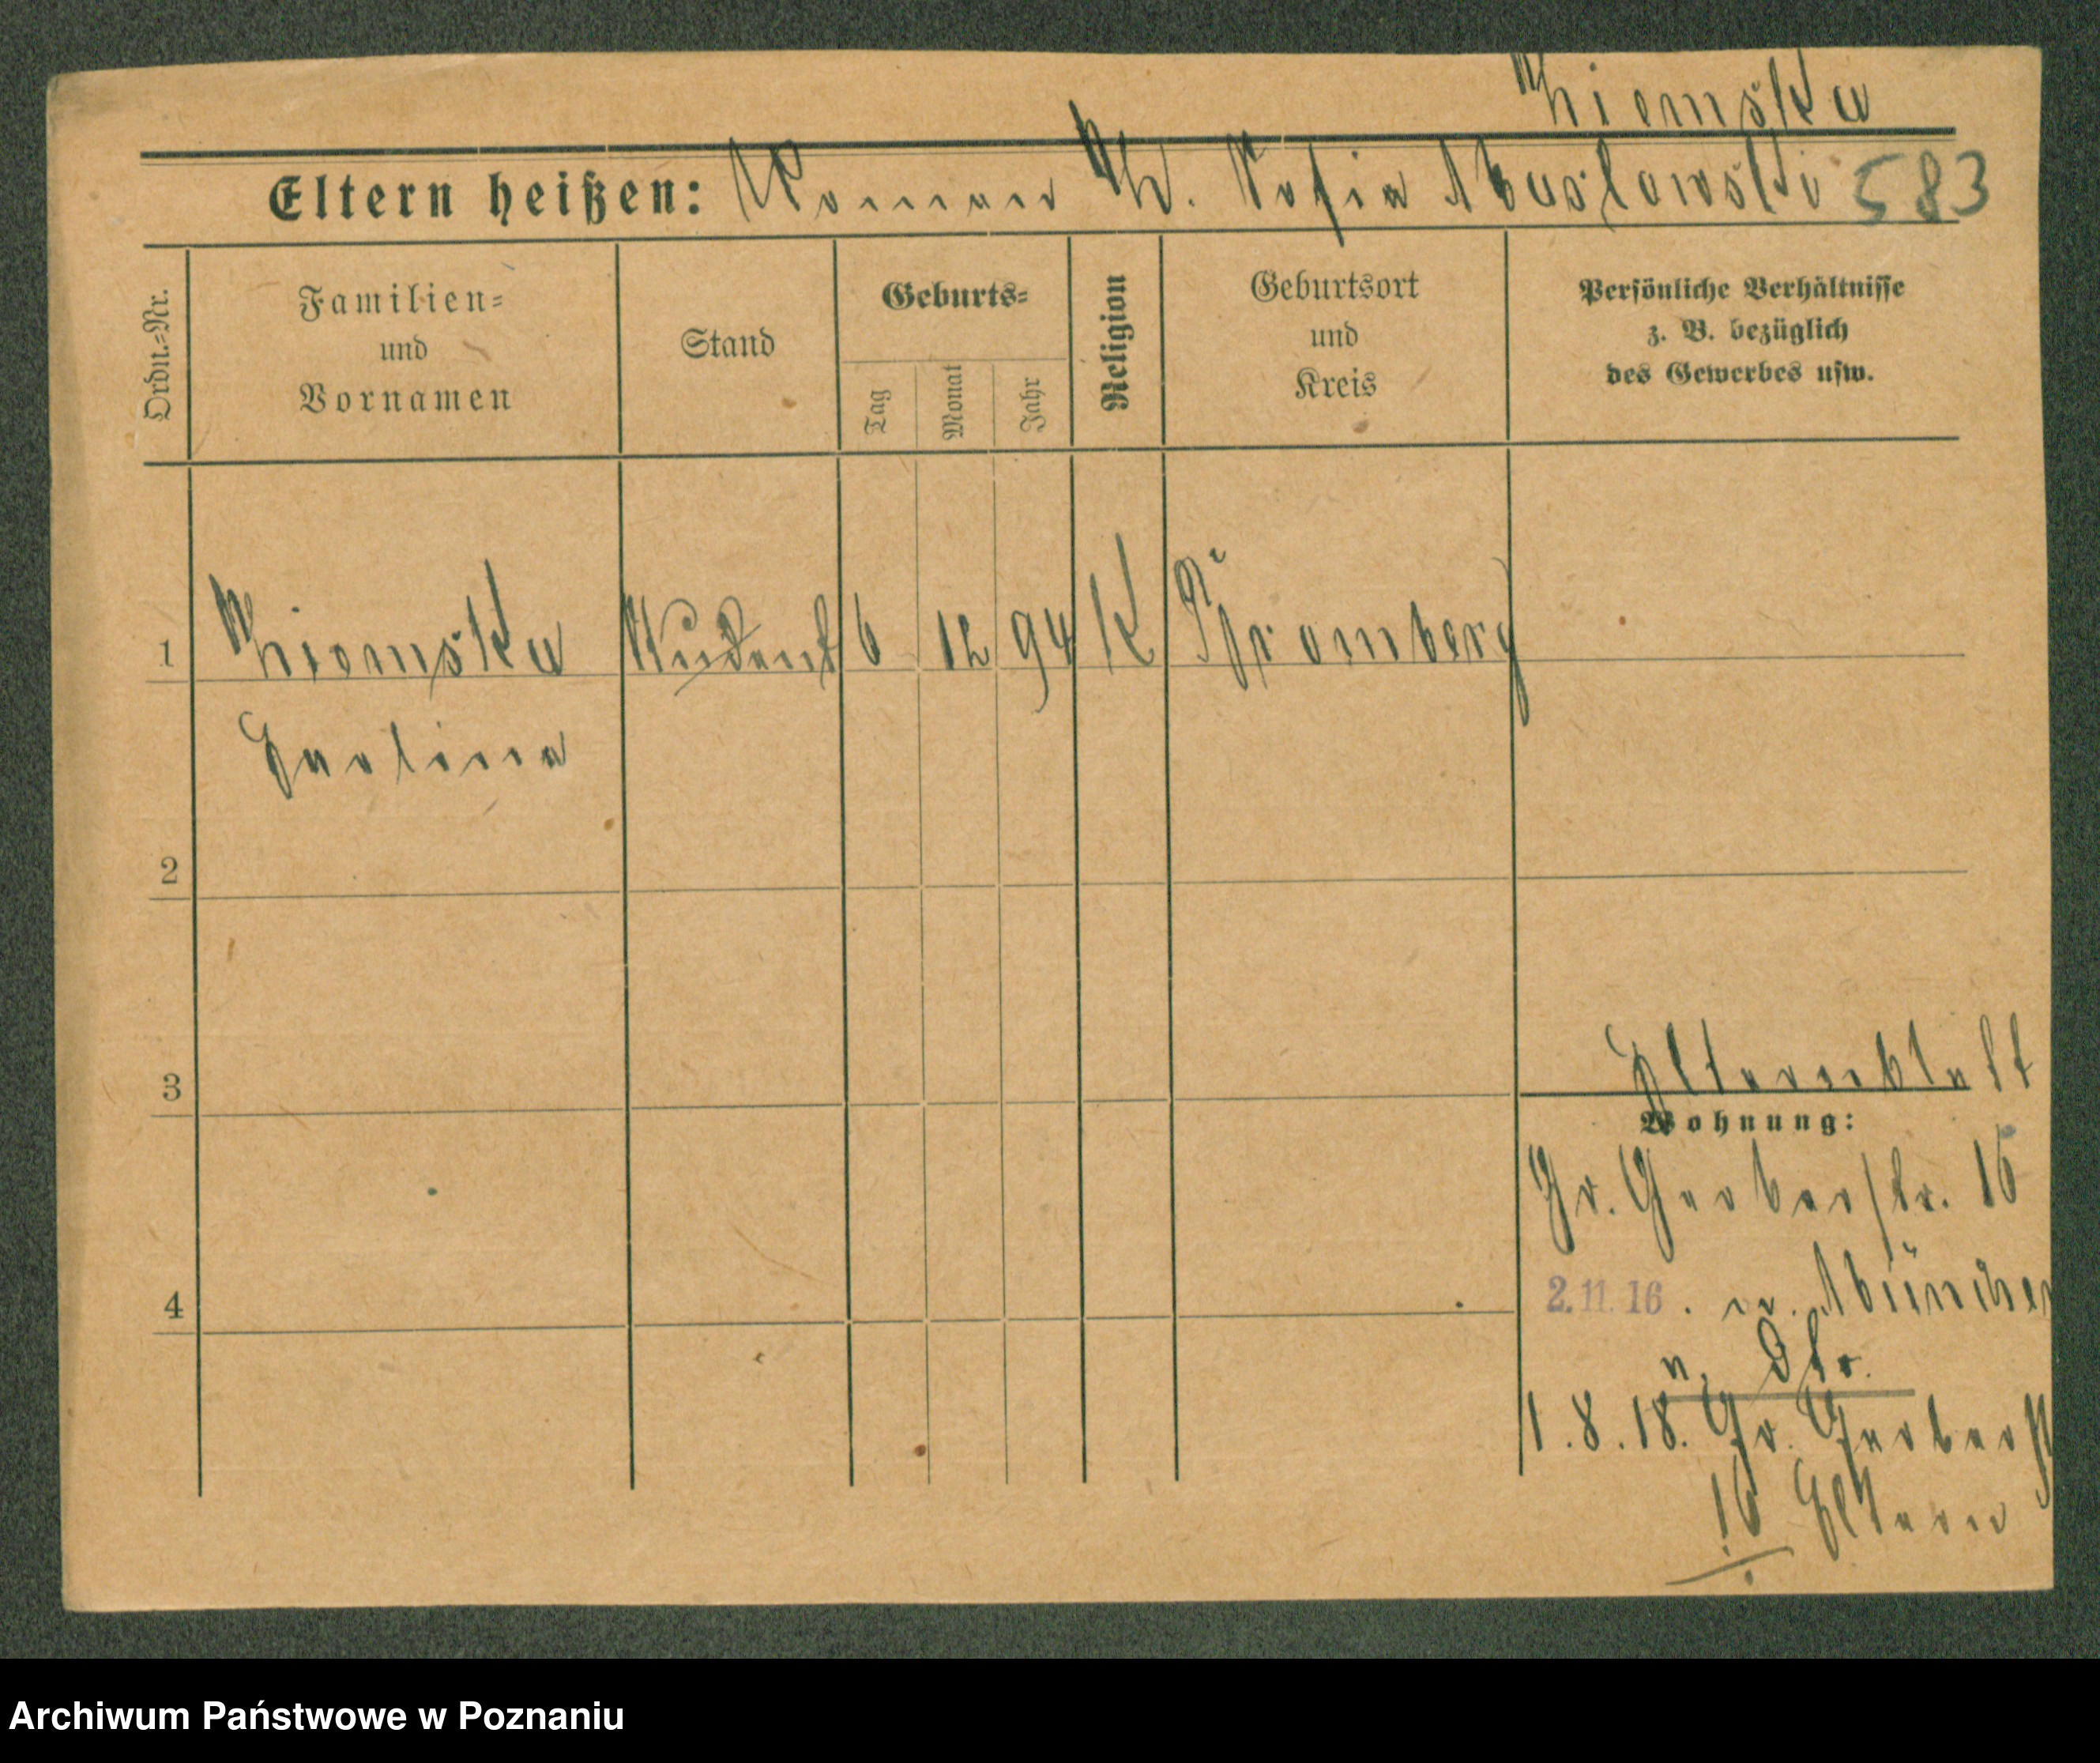 Ziemska
Eltern heißen: Roman Z. Sofia Maslowski 583
Ordn.-Nr.
Familien-
und
Vornamen
Stand
Geburts-
Tag
Monat
Jahr
Religion
Geburtsort
und
Kreis
Persönliche Verhältnisse
z. B. bezüglich
des Gewerbes usw.
1 Ziemska Student 6 12 94 K Bromberg
2
3
Elternblatt
Wohnung:
Gr. Gerberstr. 16
4
2.11.16. n. München
1.8.18. Gr. Gerberst
16 Eltern
Archiwum Państwowe w Poznaniu